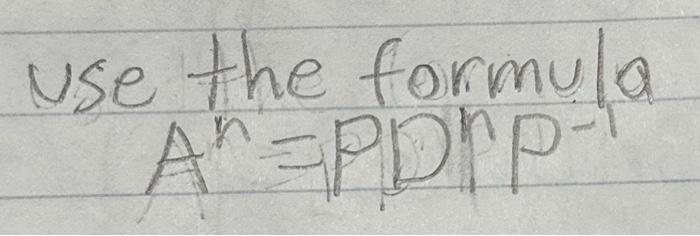 use the formula
Aⁿ = PDⁿP⁻¹